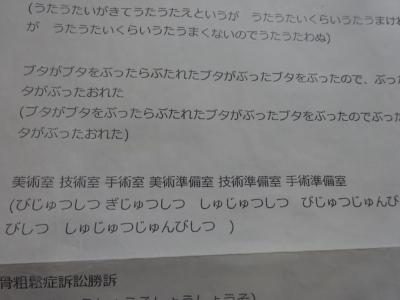 (うたうたいがきてうたうたえというが　うたうたいくらいうたうまけれ
が　うたうたいくらいうたうまくないのでうたうたわぬ)
ブタがブタをぶったらぶたれたブタがぶったブタをぶったので、ぶっ
タがぶったおれた
(ブタがブタをぶったらぶたれたブタがぶったブタをぶったのでぶった
タがぶったおれた)
美術室 技術室 手術室 美術準備室 技術準備室 手術準備室
(びじゅつしつ ぎじゅつしつ　しゅじゅつしつ　びじゅつじゅんび
びしつ　しゅじゅつじゅんびしつ　)
骨粗鬆症訴訟勝訴